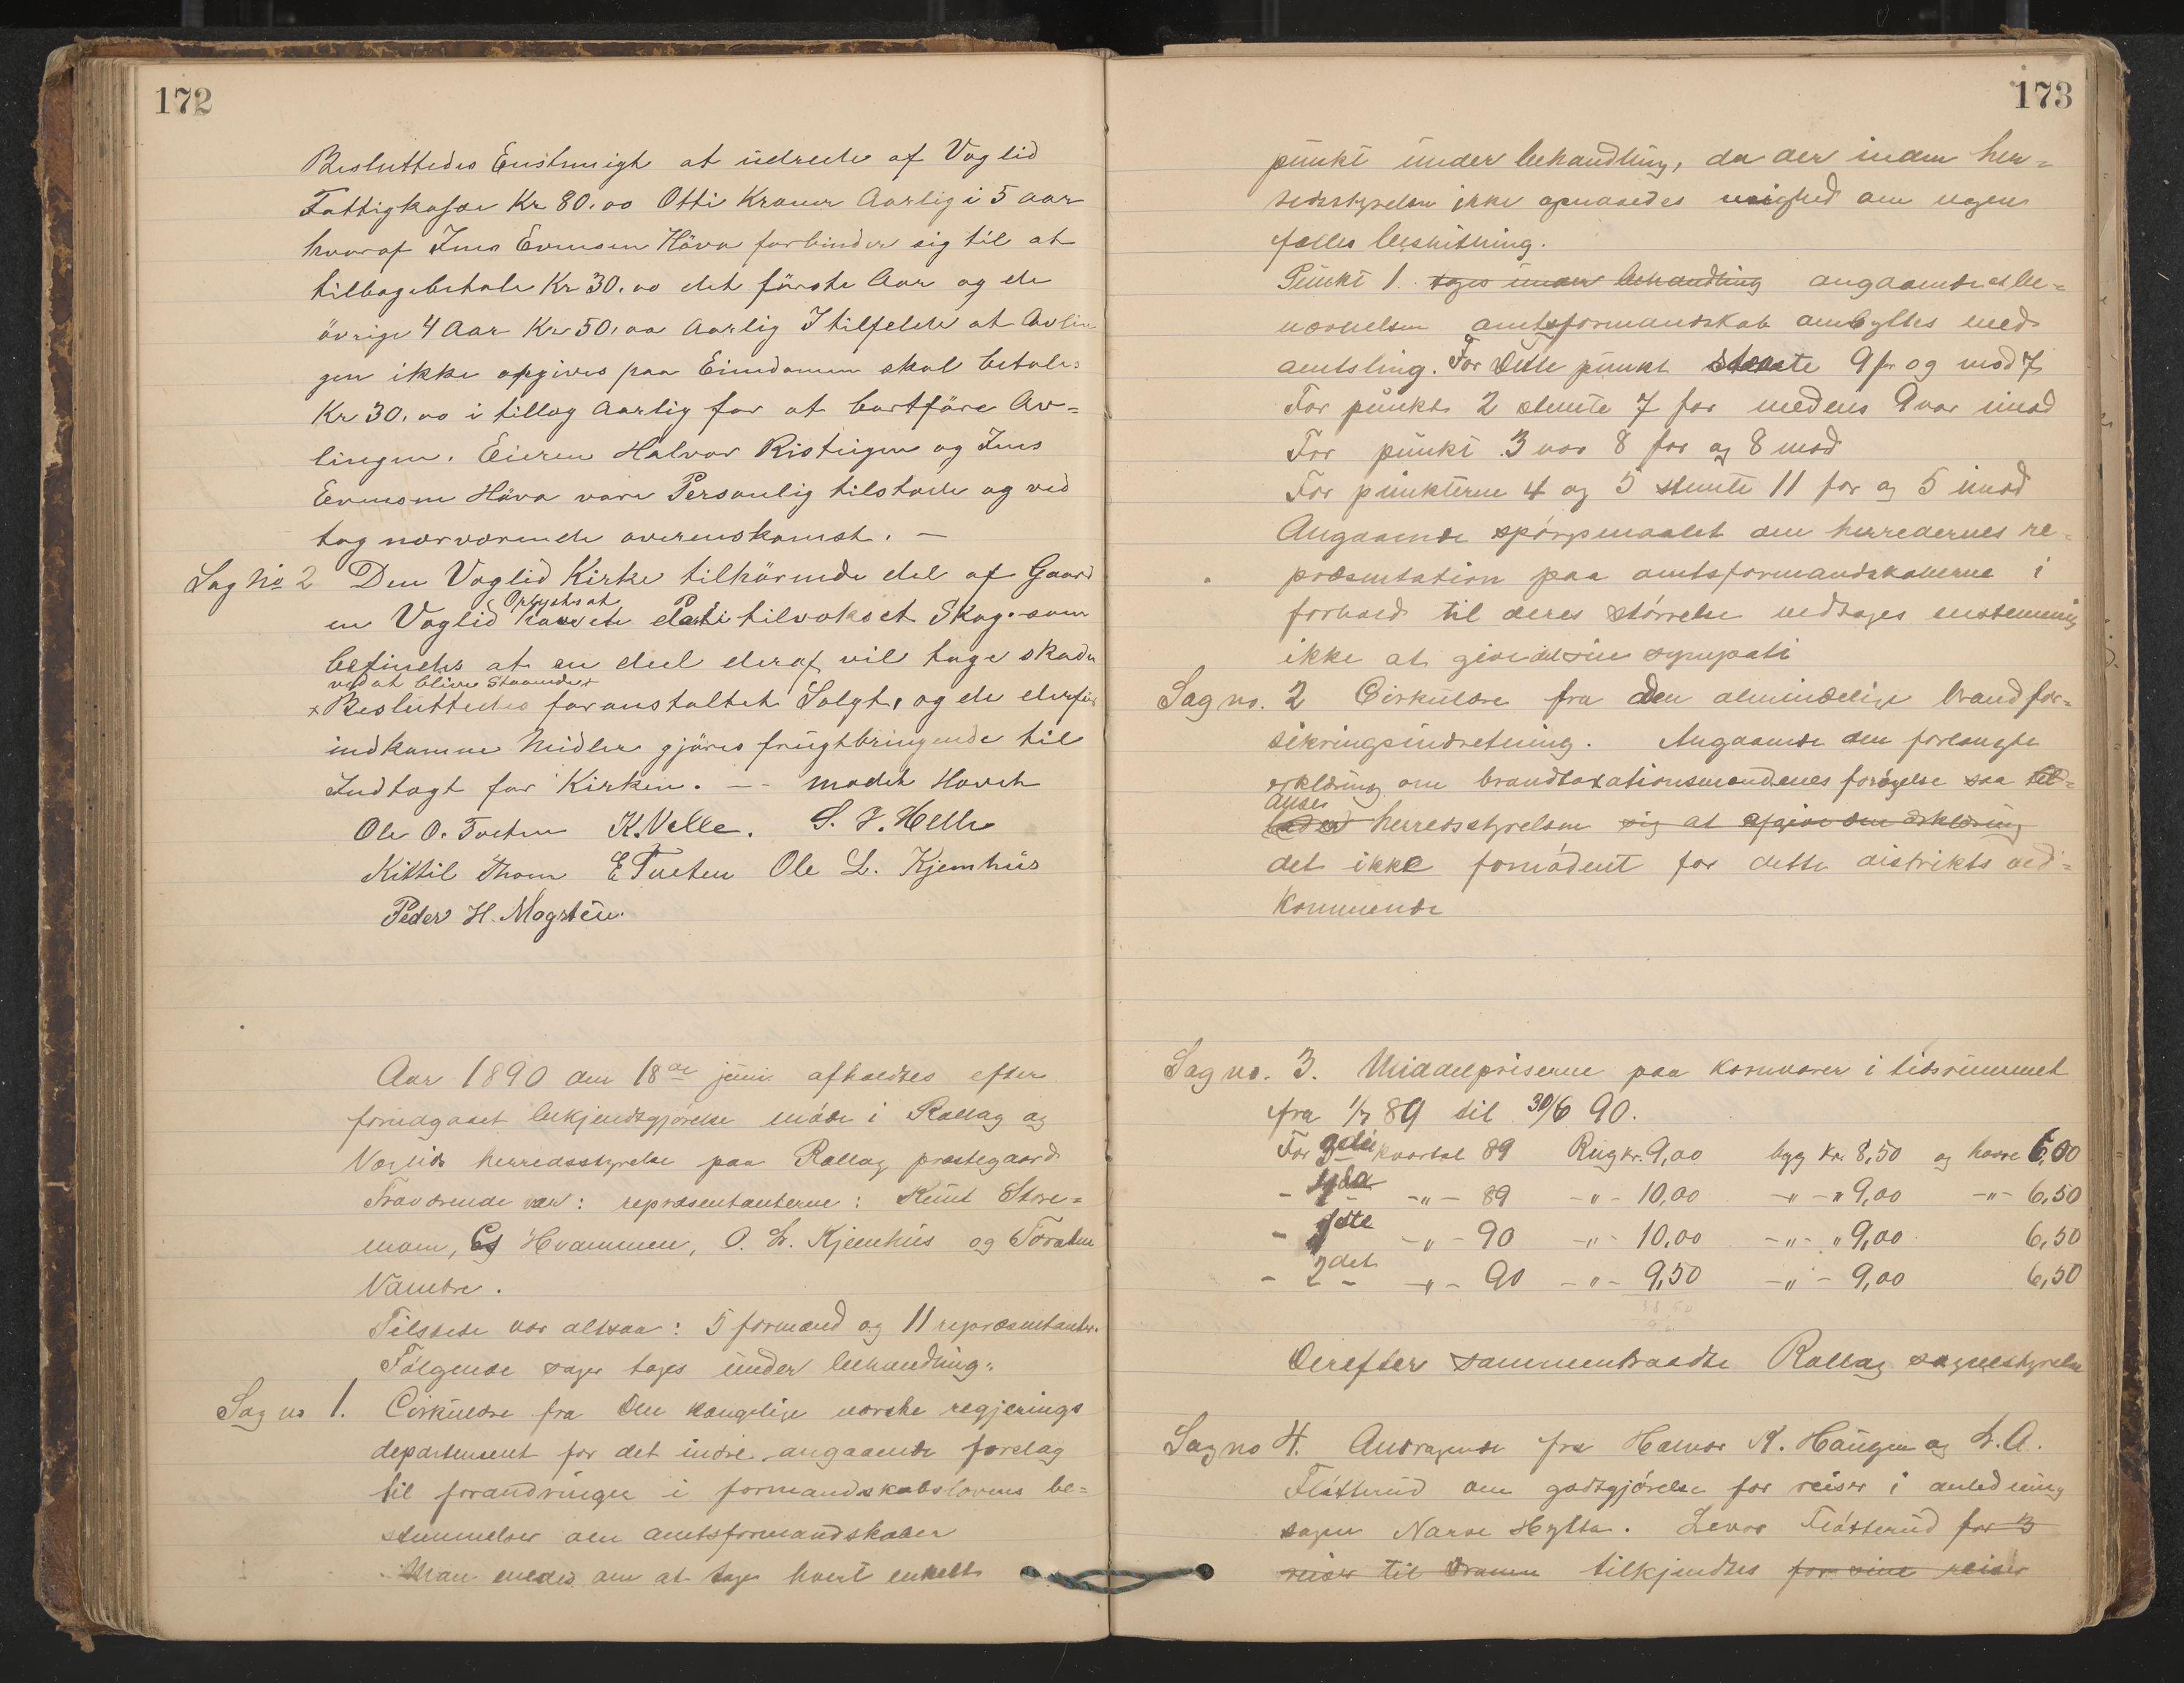 172
Besluttedes Enstmigt at udrede af Væglid
Fattigkasse Kr 80.00 Otti Kroner Aarlig i 5 aar
hvoraf Jens Evensen Höva forbinder sig til at
tilbagebetale Kr 30.00 det förste Aar og de
övrige 4 Aar Kr 50.00 Aarlig I tilfelde at Avlin
gen ikke opgives paa Eiendomen skal betales
Kr 30.00 i tillæg Aarlig for at bortföre Av=
lingen. Eieren Halvor Risteigen og Jens
Evensen Höva vare Personlig tilstede og ved
tog nærværende overenskomst. —
Sag No 2 Den Væglid Kirke tilhörende del af Gaard
Oplystes at
en Væglid havde et Parti tilvokset Skog som
befindes at en deel deraf vil tage skade
ved at blive Staaende x
x Besluttedes foranstaltet Solgt, og de derfor
indkomne Midler gjöres frugtbringende til
Indtægt for Kirken. — - mödet Hævet
Ole O. Tveten K. Velle. S. J. Helle
Kittil Thom E Tveten Ole L. Kjemhus
Peder H. Mogstëu.
Aar 1890 den 18de juni afholdtes efter
forudgaaet bekjendtgjørelse møde i Rollag og
Væglids herredsstyrelse paa Rollag prestegaard
Fraværende var: repræsentanterne: Knut Store=
moen, Hvammen, O. L. Kjemhus og Toralm
Vandre.
Tilstede var altsaa: 5 formænd og 11 repræsentanter.
Følgende sager toges under behandling:
Sag no 1. Cirkulære fra Den kongelige norske regjerings
departement for det indre angaaende forslag
til forandringer i formandskabslovens be=
stemmelser om amtsformandskaber
Man enedes om at tage hvert enkelt
173
punkt under behandling, da der inden her=
redsstyrelsen ikke opnaaedes enighed om nogen
fælles beslutning.
Punkt 1. toges under behandling angaaende at be=
nævnelsen amtsformandskab ombyttes med
amtsting. For Dette punkt stemte 9 for og mod 7
For punkt 2 stemte 7 for medens 9 var imod
For punkt 3 var 8 for og 8 mod
For punkterne 4 og 5 stemte 11 for og 5 imod
Angaaende spørgsmaalet om herredernes re=
præsentation paa amtsformandskaberne i
forhold til deres størrelse vedtages enstemmig
ikke at give det sin sympati
Sag no. 2 Cirkulære fra den almindelige brandfor=
sikringsindretning. Angaaende den forlangte
erklæring om brandtaxationsmændenes forøgelse saa
anser
herredsstyrelsen sig at afgive den erklæring
det ikke fornødent for dette distrikts ved=
kommende
Sag no. 3. Middelpriserne paa kornvarer i tidsrummet
fra 1/7 89 til 30/6 90.
For 3die kvartal 89 Rug kr. 9,00 byg kr. 8,50 og havre 6,00
- 4de -"- 89 -"- 10,00 -"- " 9,00 -"- 6,50
- 1ste -"- 90 -"- 10,00 -"- " 9,00 6,50
- 2det -"- 90 -"- 9,50 -"- 9,00 6,50
Derefter sammentraadte Rollag sognestyrelse
Sag no 4. Andragende fra Halvor K. Haugen og L. A.
Fløtterud om godtgjørelse for reiser i anledning
sagen Narve Hylta. Levor Fløtterud for 3
reiser til Dramm tilkjendtes for sine reiser